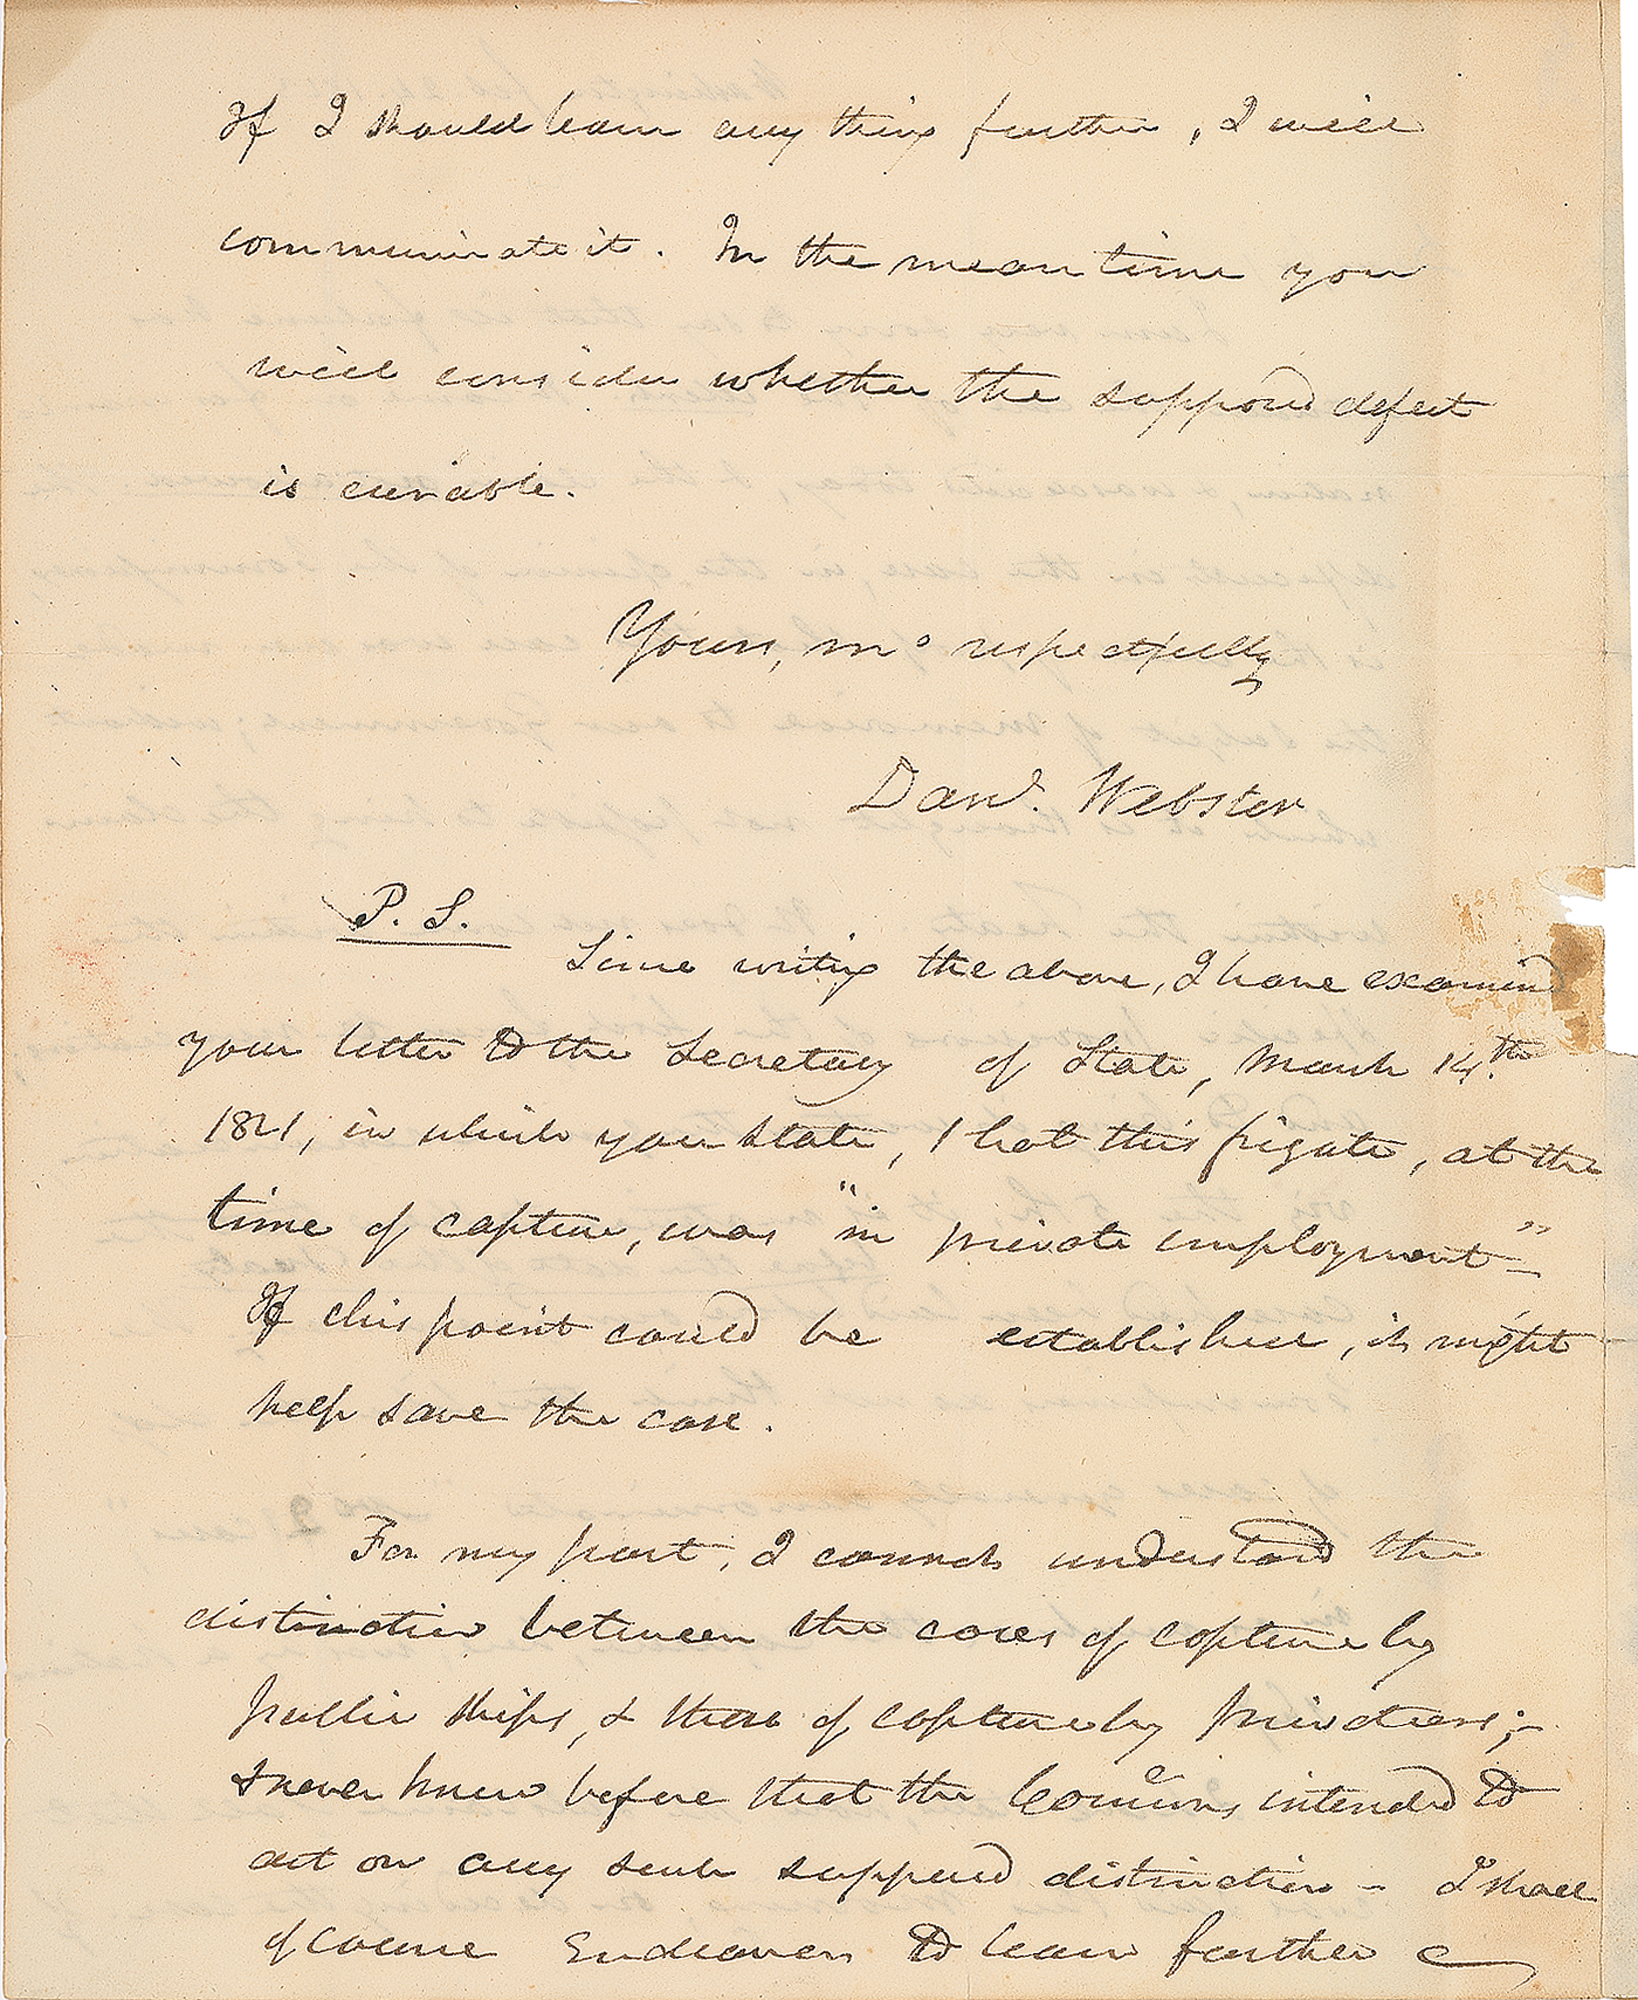 If I should learn any thing further, I will
communicate it. In the mean time you
will consider whether the supposed defect
is curable.
Yours, mo respectfully
Danl. Webster
P. S.
Since writing the above, I have examined
your letter to the Secretary of State, March 14th
1821, in which you state, that this frigate, at the
time of capture, was "in private employment"—
If this point could be established, it might
help save the case.
For my part, I cannot understand the
distinction between the cases of capture by
public ships, & those of capture by privateers;—
I never knew before that the Comrs intended to
act on any such supposed distinction – I shall
of course Endeavor to learn further